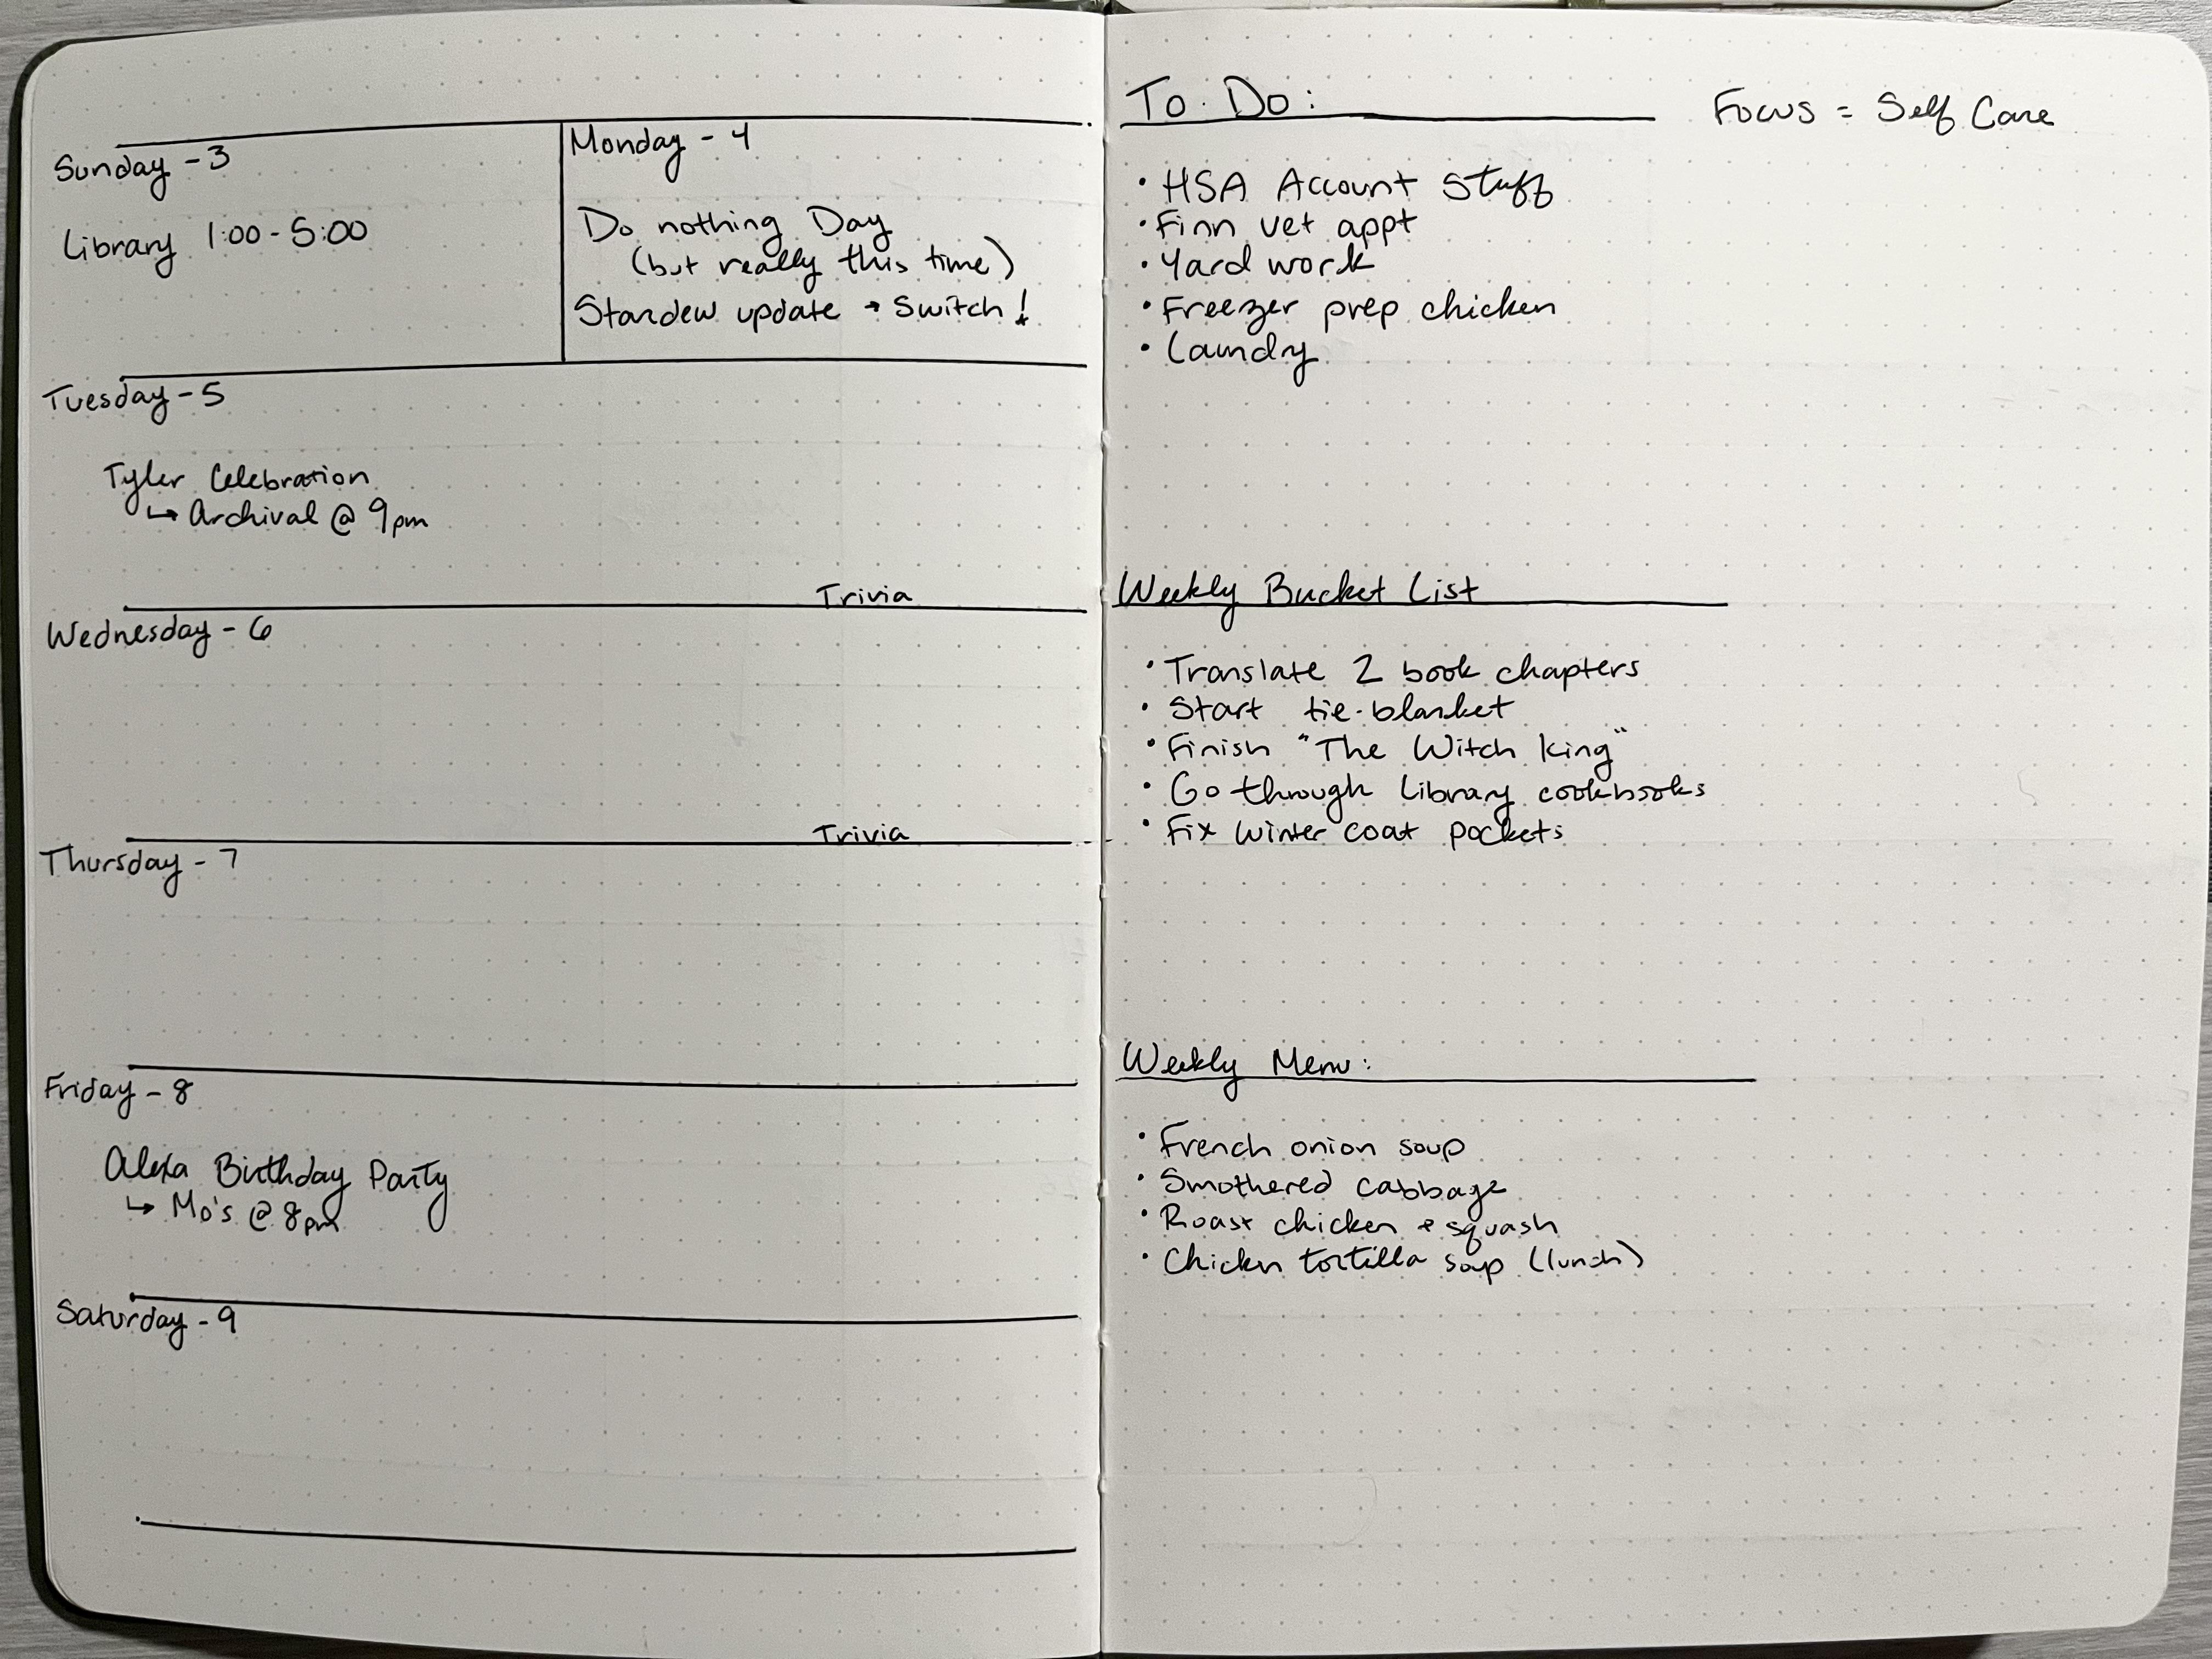 Sunday - 3
Library 1:00 - 5:00
Monday - 4
Do nothing Day
(but really this time)
Stardew update → Switch!
Tuesday - 5
Tyler Celebration
↳ Archival @ 9pm
Trivia
Wednesday - 6
Trivia
Thursday - 7
Friday - 8
Alexa Birthday Party
↳ Mo's @ 8pm
Saturday - 9
To Do:
Focus = Self Care
• HSA Account Stuff
• Finn vet appt
• Yard work
• Freezer prep chicken
• Laundry
Weekly Bucket List
• Translate 2 book chapters
• Start tie-blanket
• Finish "The Witch King"
• Go through Library cookbooks
• Fix winter coat pockets
Weekly Menu:
• French onion soup
• Smothered cabbage
• Roast chicken + squash
• Chicken tortilla soup (lunch)